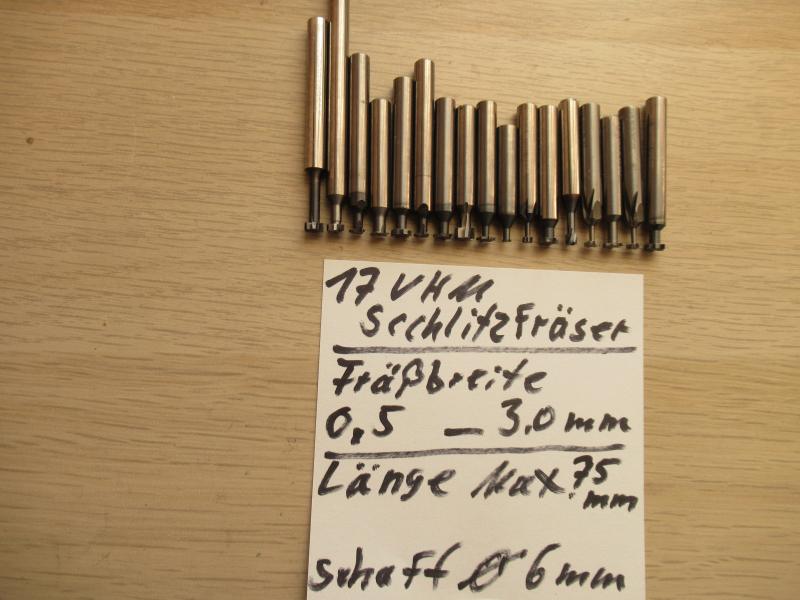 17 VHM
Scchlitzfräser
Fräßbreite
0,5 – 3,0 mm
Länge Max. 75
mm
schaft Ø 6 mm